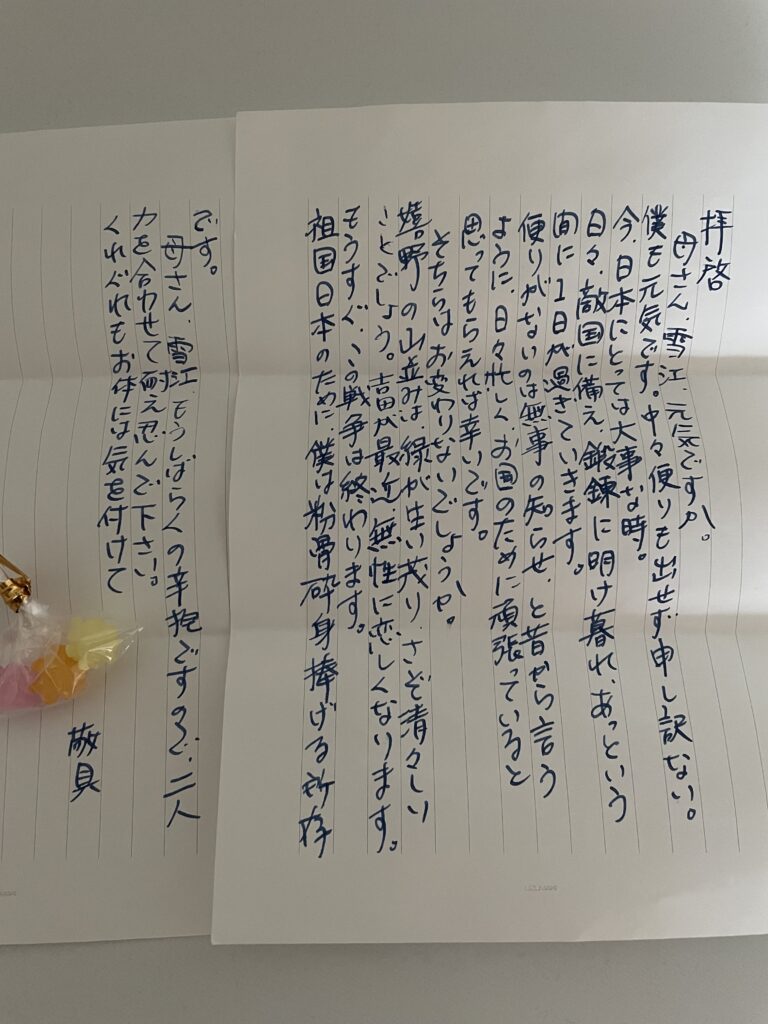 拝啓
母さん、雪江、元気ですか。
僕も元気です。中々便りも出せず申し訳ない。
今、日本にとっては大事な時。
日々、敵国に備え、鍛錬に明け暮れ、あっという
間に1日が過ぎていきます。
便りがないのは無事の知らせ、と昔から言う
ように、日々忙しく、お国のために頑張っていると
思ってもらえれば幸いです。
そちらはお変わりないでしょうか。
嬉野の山並みは、緑が生い茂り、さぞ清々しい
ことでしょう。吉田が最近、無性に恋しくなります。
もうすぐ、この戦争は終わります。
祖国日本のために、僕は粉骨砕身捧げる所存
です。
母さん、雪江、もうしばらくの辛抱ですので、二人
力を合わせて耐え忍んで下さい。
くれぐれもお体には気を付けて
敬具